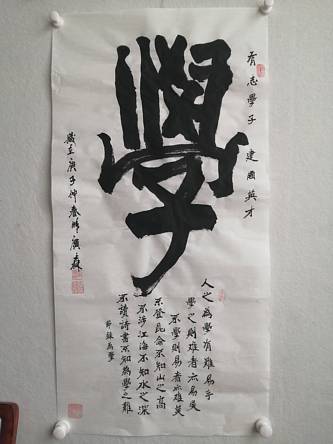 有志學子 建國英才
學
人之為學有難易乎
學之則難者亦易矣
不學則易者亦難矣
不登昆侖不知山之高
不涉江海不知水之深
不讀詩書不知為學之難
節錄為學
歲在庚子仲春時廣森